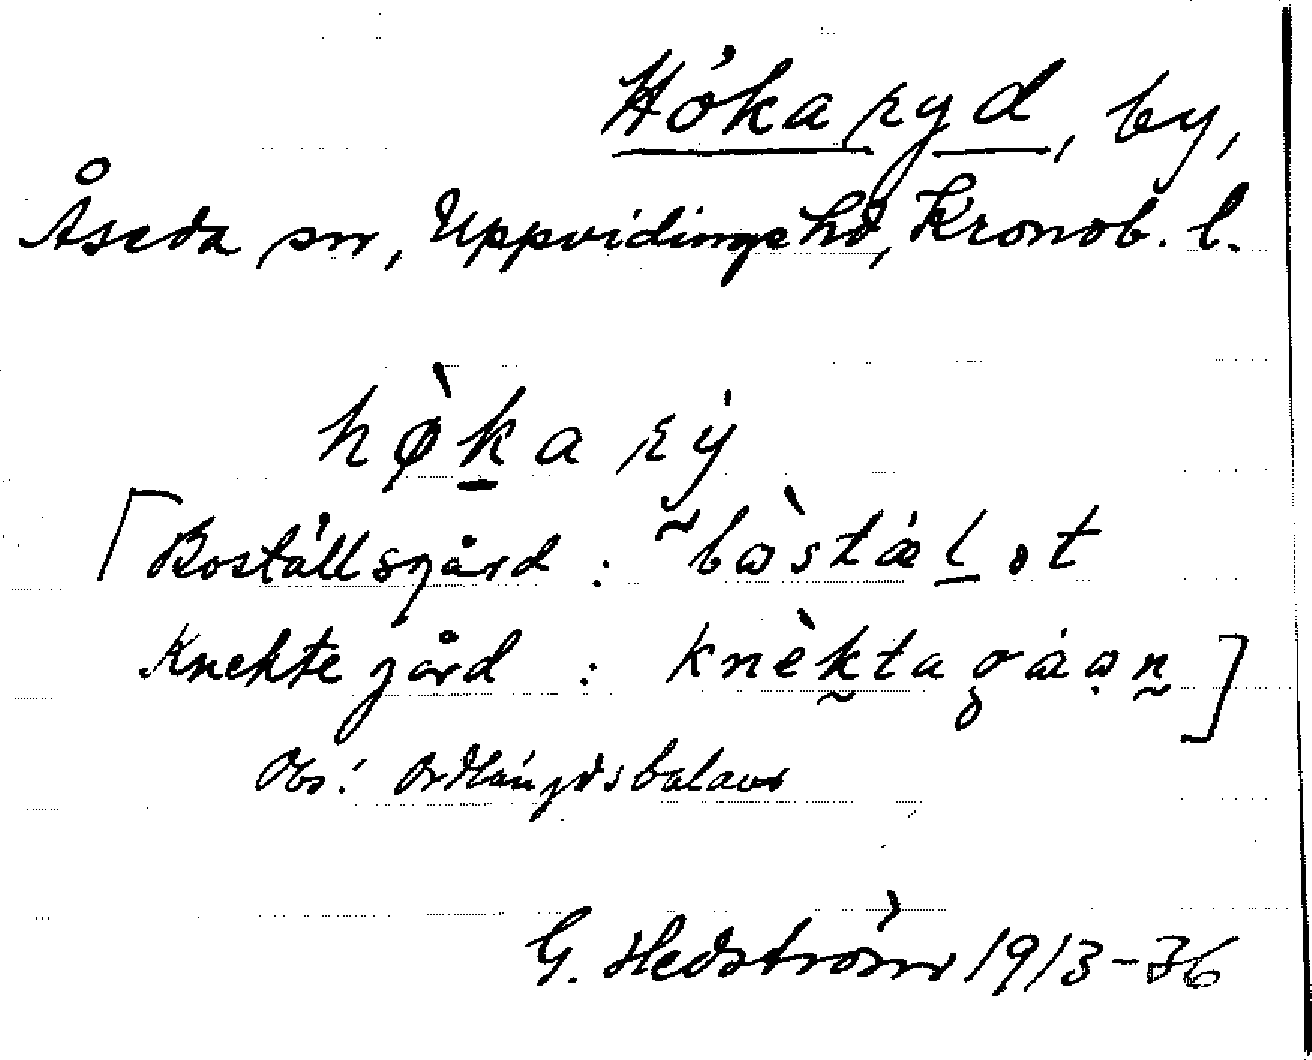 Hökaryd, by,
Åseda sn, Uppvidinge hd, Kronob. l.
hø̀ka rý
[Boställsgård : bòstæĺ ot
Knektegård : knèktagáan]
Obs! Ordlängdsbalans
G. Hedström 1913-36